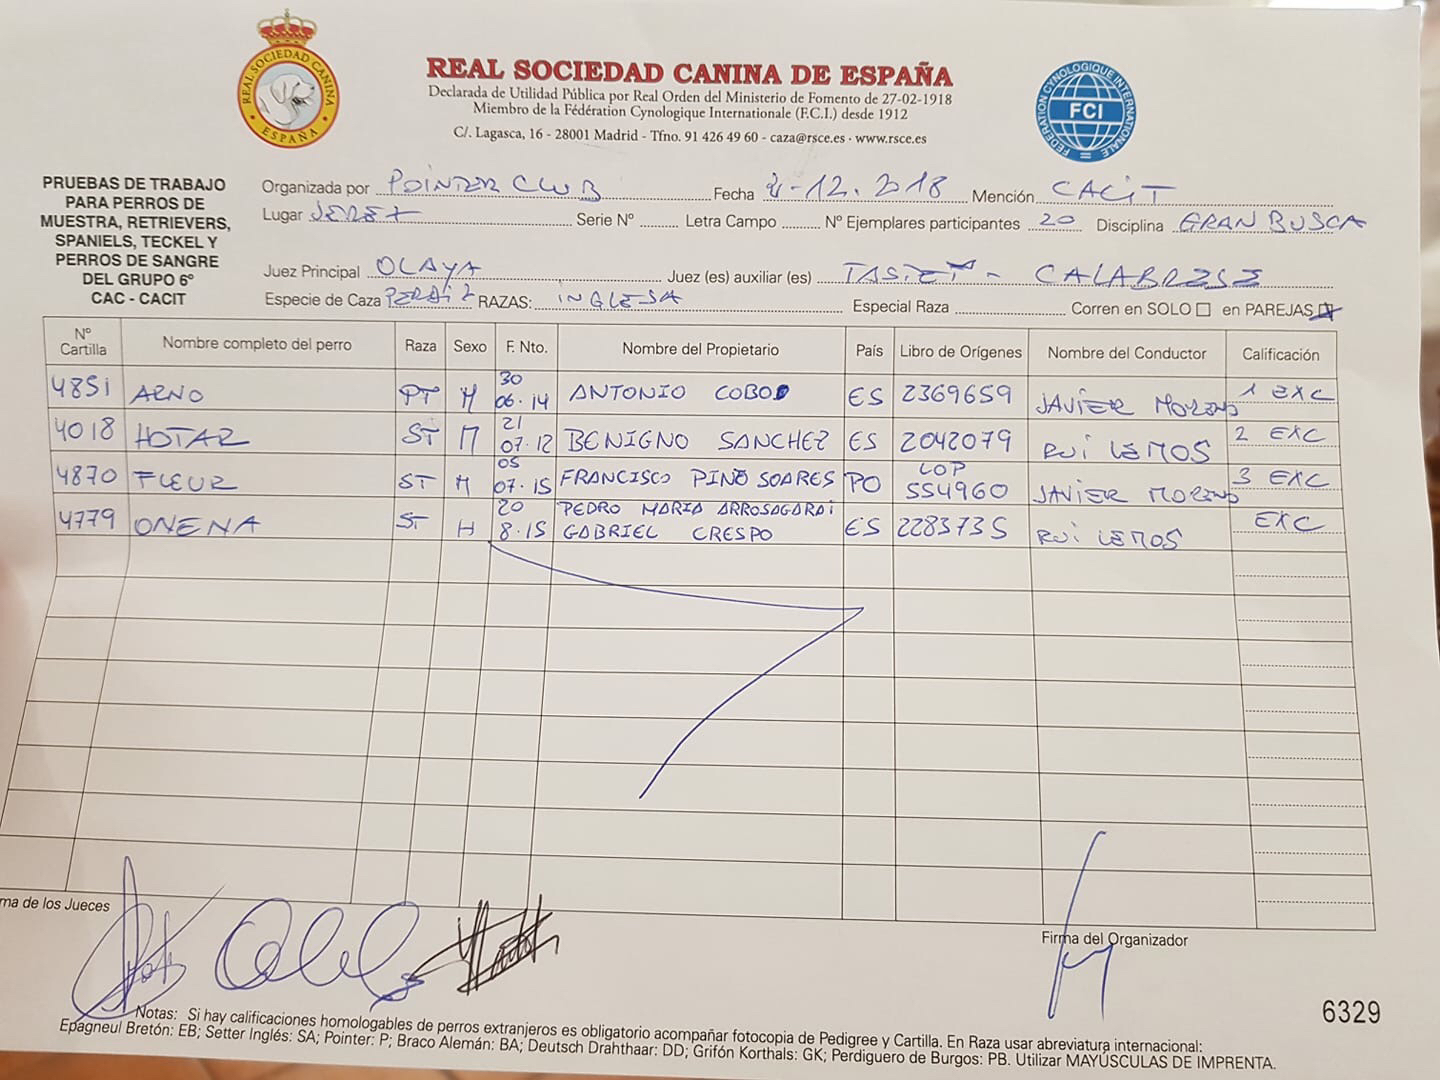 REAL SOCIEDAD CANINA
ESPAÑA
REAL SOCIEDAD CANINA DE ESPAÑA
Declarada de Utilidad Pública por Real Orden del Ministerio de Fomento de 27-02-1918
Miembro de la Fédération Cynologique Internationale (F.C.I.) desde 1912
C/. Lagasca, 16 - 28001 Madrid - Tfno. 91 426 49 60 - caza@rsce.es · www.rsce.es
FEDERATION CYNOLOGIQUE INTERNATIONALE
FCI
PRUEBAS DE TRABAJO
PARA PERROS DE
MUESTRA, RETRIEVERS,
SPANIELS, TECKEL Y
PERROS DE SANGRE
DEL GRUPO 6º
CAC - CACIT
Organizada por POINTER CLUB Fecha -12.2018 Mención CACIT
Lugar JEREZ Serie Nº Letra Campo Nº Ejemplares participantes 20 Disciplina GRAN BUSCA
Juez Principal OLAYA Juez (es) auxiliar (es) TASIES - CALABRESE
Especie de Caza PERDIZ RAZAS: INGLESA Especial Raza Corren en SOLO en PAREJAS
Nº Cartilla Nombre completo del perro Raza Sexo F. Nto. Nombre del Propietario País Libro de Orígenes Nombre del Conductor Calificación
4851 ARNO PT M 30 06.14 ANTONIO COBOS ES 2369659 JAVIER MORENO 1 EXC
4018 HOTAR ST M 21 07.12 BENIGNO SANCHEZ ES 2042079 RUI LEMOS 2 EXC
4870 FLEUR ST M 05 07.15 FRANCISCO PINO SOARES PO LOP 554960 JAVIER MORENO 3 EXC
4779 ONENA ST H 20 8.15 PEDRO MARIA ARROSAGARAI GABRIEL CRESPO ES 2283735 RUI LEMOS EXC
ma de los Jueces
Firma del Organizador
6329
Notas: Si hay calificaciones homologables de perros extranjeros es obligatorio acompañar fotocopia de Pedigree y Cartilla. En Raza usar abreviatura internacional:
Epagneul Bretón: EB; Setter Inglés: SA; Pointer: P; Braco Alemán: BA; Deutsch Drahthaar: DD; Grifón Korthals: GK; Perdiguero de Burgos: PB. Utilizar MAYÚSCULAS DE IMPRENTA.